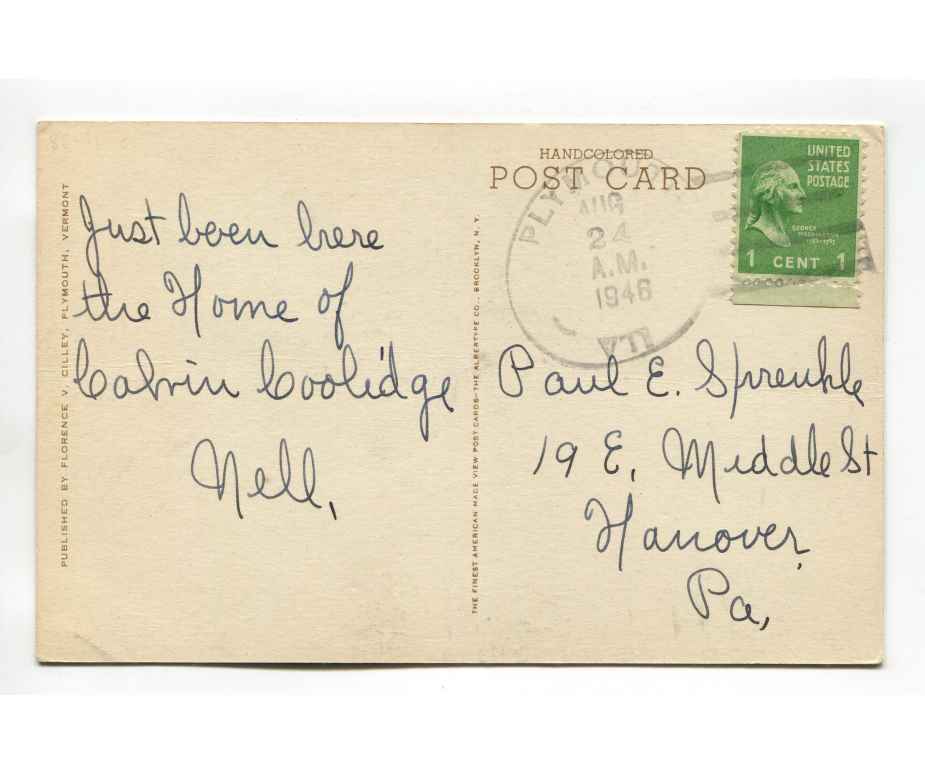 PUBLISHED BY FLORENCE V. CILLEY, PLYMOUTH, VERMONT
Just been here
the Home of
Calvin Coolidge
Nell,
THE FINEST AMERICAN MADE VIEW POST CARDS—THE ALBERTYPE CO., BROOKLYN, N.Y.
HANDCOLORED
POST CARD
PLYMOUTH
AUG
24
A.M.
1946
UNITED
STATES
POSTAGE
GEORGE
WASHINGTON
1 CENT 1
Paul E. Sprenkle
19 E. Middle St
Hanover
Pa,